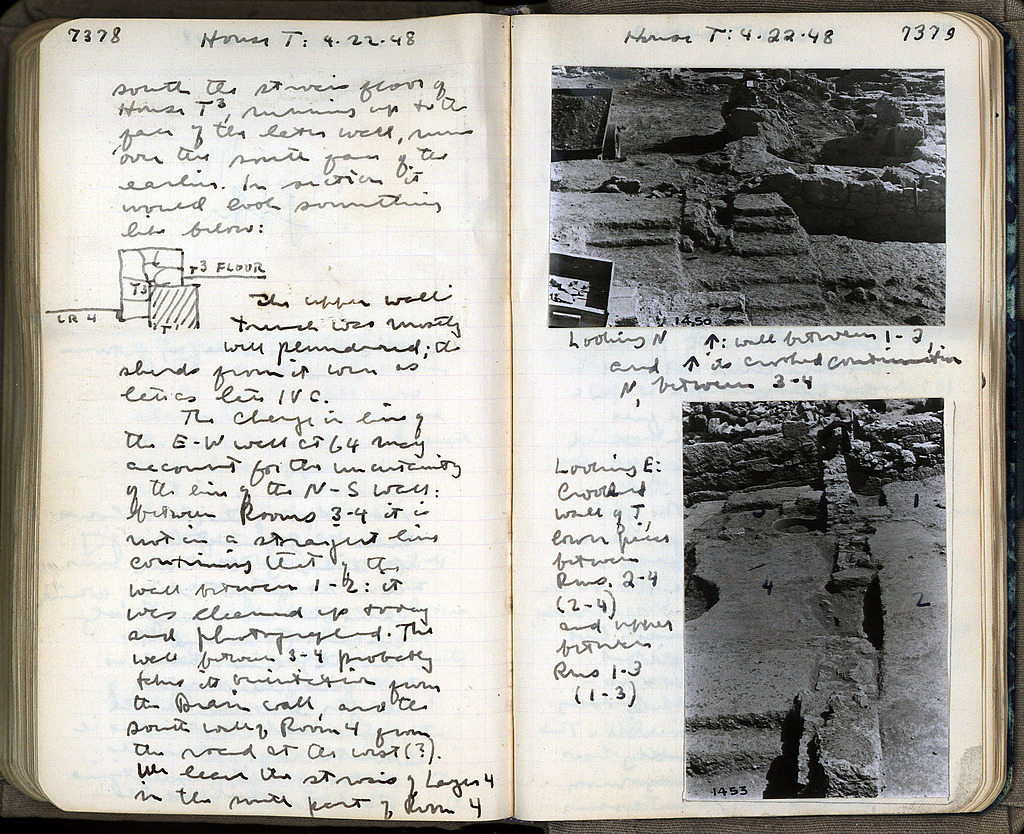 7378
House T: 4.22.48
south the strosis floor of
House T³, running up to the
face of the later wall, runs
over the south face of the
earlier. In section it
would look something
like below:
T3 FLOOR
T3
LR 4
T'
The upper wall
trench was mostly
well plundered; the
sherds from it were as
late as late IV C.
The change in line of
the E-W wall at 64 may
account for the uncertainty
of the line of the N-S wall:
between Rooms 3-4 it is
not in a straight line
continuing that of the
wall between 1-2: it
was cleaned up today
and photographed. The
wall between 3-4 probably
takes its orientation from
the Drain wall, and the
south wall of Room 4 from
the road at the west (?).
We clean the strosis of Layer 4
in the south part of Room 4
House T: 4.22.48
7379
1450
Looking N ↑: wall between 1-2,
and ↑ its crooked continuation
N, between 3-4
Looking E:
Crooked
wall of T,
lower piece
between
Rms. 2-4
(2-4)
and upper
between
Rms 1-3
(1-3)
3
1
4
2
1453